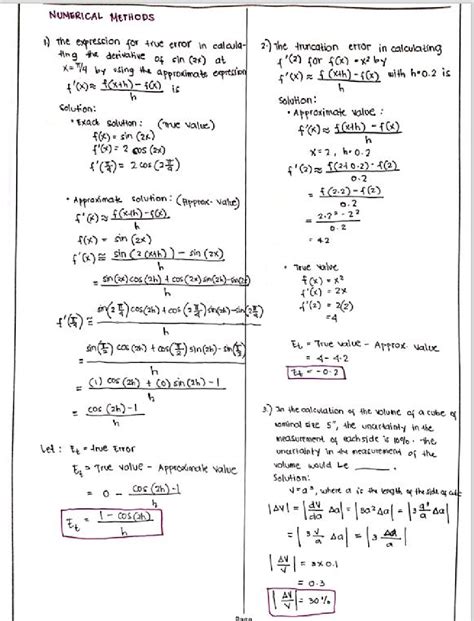 NUMERICAL METHODS
1) The expression for true error in calcula-
ting the derivative of sin (2x) at
x = π/4 by using the approximate expression
f'(x) ≈ f(x+h) - f(x) / h is
Solution:
• Exact solution: (True value)
f(x) = sin (2x)
f'(x) = 2 cos (2x)
f'(π/4) = 2 cos (2 π/4)
• Approximate solution: (Approx. Value)
f'(x) ≈ f(x+h) - f(x) / h
f(x) = sin (2x)
f'(x) ≈ sin (2(x+h)) - sin (2x) / h
= sin(2x) cos(2h) + cos(2x) sin(2h) - sin(2x) / h
f'(π/4) ≈ sin(2 π/4) cos(2h) + cos(2 π/4) sin(2h) - sin(2 π/4) / h
= sin(π/2) cos(2h) + cos(π/2) sin(2h) - sin(π/2) / h
= (1) cos(2h) + (0) sin(2h) - 1 / h
= cos(2h) - 1 / h
Let: Et = true Error
Et = True value - Approximate Value
= 0 - cos(2h) - 1 / h
Et = 1 - cos(2h) / h
2.) The truncation error in calculating
f'(2) for f(x) = x² by
f'(x) ≈ f(x+h) - f(x) / h with h=0.2 is
Solution:
• Approximate Value:
f'(x) ≈ f(x+h) - f(x) / h
x = 2, h = 0.2
f'(2) ≈ f(2+0.2) - f(2) / 0.2
= f(2.2) - f(2) / 0.2
= 2.2² - 2² / 0.2
= 4.2
• True Value
f(x) = x²
f'(x) = 2x
f'(2) = 2(2)
= 4
Et = True value - Approx. Value
= 4 - 4.2
Et = -0.2
3.) In the calculation of the volume of a cube of
nominal size 5", the uncertainty in the
measurement of each side is 10%. The
uncertainty in the measurement of the
volume would be ______.
Solution:
V = a³, where a is the length of the side of cube
|ΔV| = |dV/da Δa| = |3a² Δa| = |3 a³/a Δa|
= |3 V/a Δa| = |3 Δa/a|
|ΔV/V| = 3 x 0.1
= 0.3
|ΔV/V| = 30%